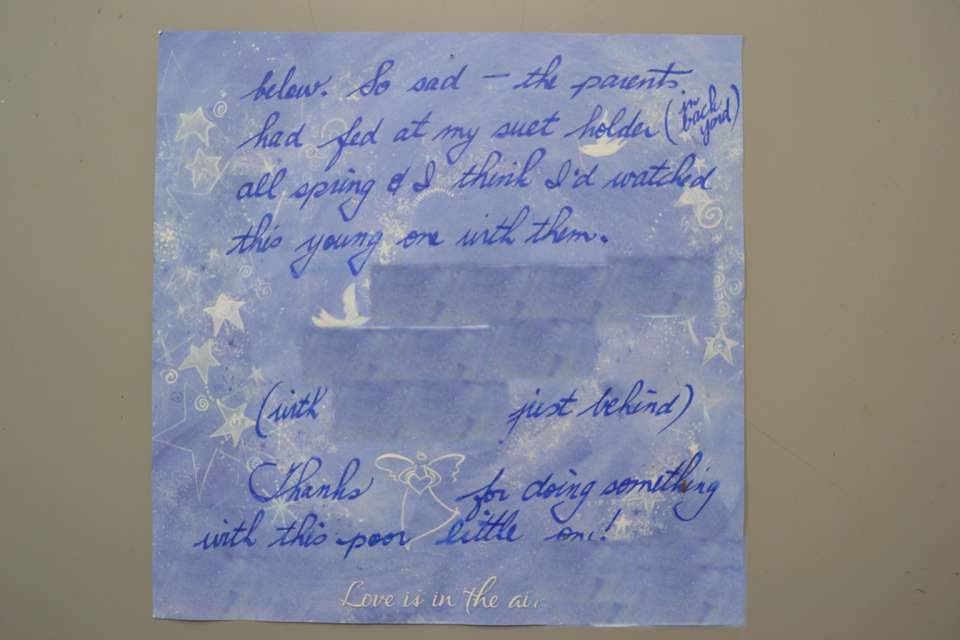 below. So sad – the parents
had fed at my suet holder (in back yard)
all spring & I think I'd watched
this young one with them.
(with
just behind)
Thanks for doing something
with this poor little one!
Love is in the air